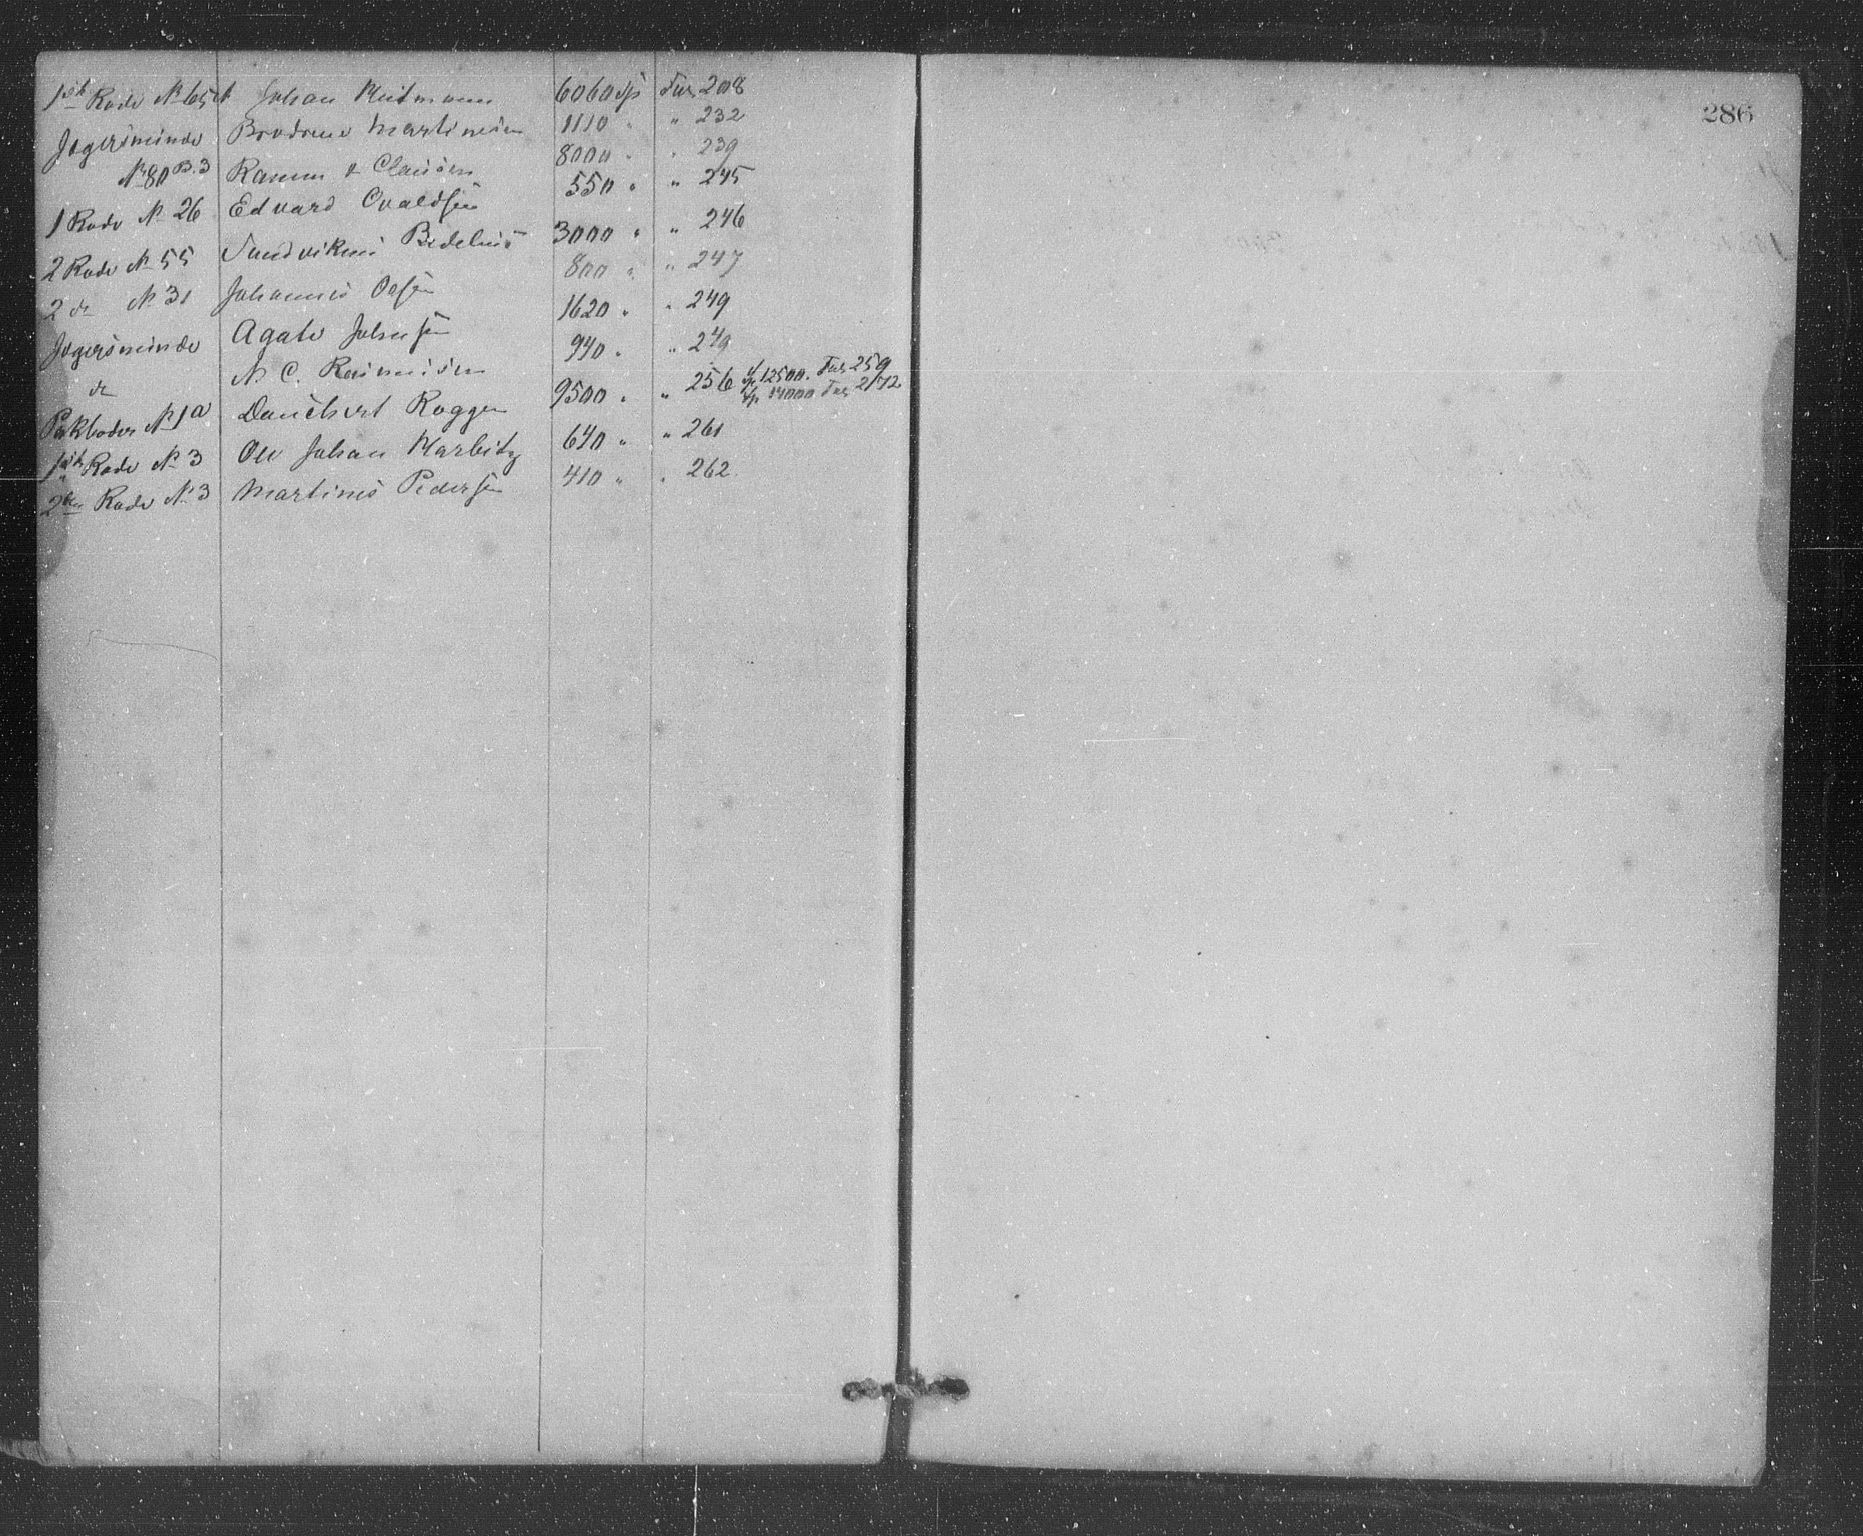 1ste Rode No 65 A Johan Reitmann 6060 sp Fol. 208
Jegersminde Brødrene Martinsen 1110 " " 232
No 80 B.3 Ramm & Clausen 8000 " " 239
1 Rode No 26 Edvard Evaldsen 550 " " 245
2 Rode No 55 Sundvikens Bedehus 3000 " " 246
2 do No 31 Johannes Olsen 800 " " 247
Jegersminde Agate Johnsen 1620 " " 249
do N. C. Rasmussen 940 " " 249
Pakboder No 1a Danckert Krogge 9500 " " 256 12500. Fol. 259
14000 Fol. 272
1ste Rode No 3 Ole Johan Karbitz 640 " " 261
2den Rode No 3 Martines Pedersen 410 " " 262.
286